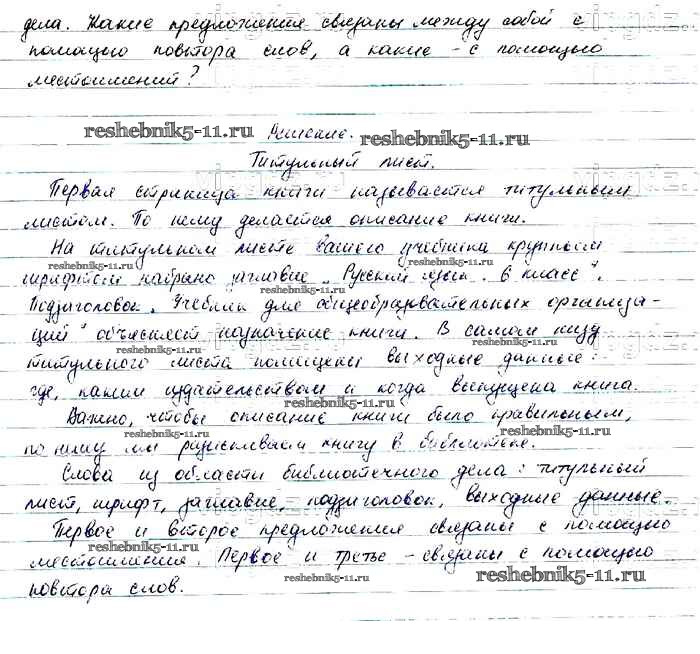 дела. Какие предложения связаны между собой с
помощью повтора слов, а какие - с помощью
местоимений?
reshebnik5-11.ru Решение. reshebnik5-11.ru
Титульный лист.
Первая страница книги называется титульным
листом. По нему делается описание книги.
На титульном листе вашего учебника крупным
reshebnik5-11.ru reshebnik5-11.ru
шрифтом набрано заглавие „Русский язык. 6 класс".
Подзаголовок „Учебник для общеобразовательных организа-
reshebnik5-11.ru
ций" объясняет назначение книги. В самом низу
reshebnik5-11.ru
титульного листа помещены выходные данные:
где, каким издательством и когда выпущена книга.
Важно, чтобы описание книги было правильным,
reshebnik5-11.ru reshebnik5-11.ru
по нему мы разыскиваем книгу в библиотеке.
Слова из области библиотечного дела: титульный
лист, шрифт, заглавие, подзаголовок, выходные данные.
reshebnik5-11.ru
Первое и второе предложения связаны с помощью
reshebnik5-11.ru
местоимения. Первое и третье - связаны с помощью
reshebnik5-11.ru reshebnik5-11.ru
повтора слов.